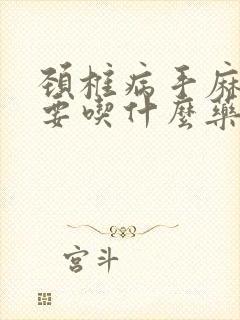 頚椎病手麻
要喫什麼藥
宮斗